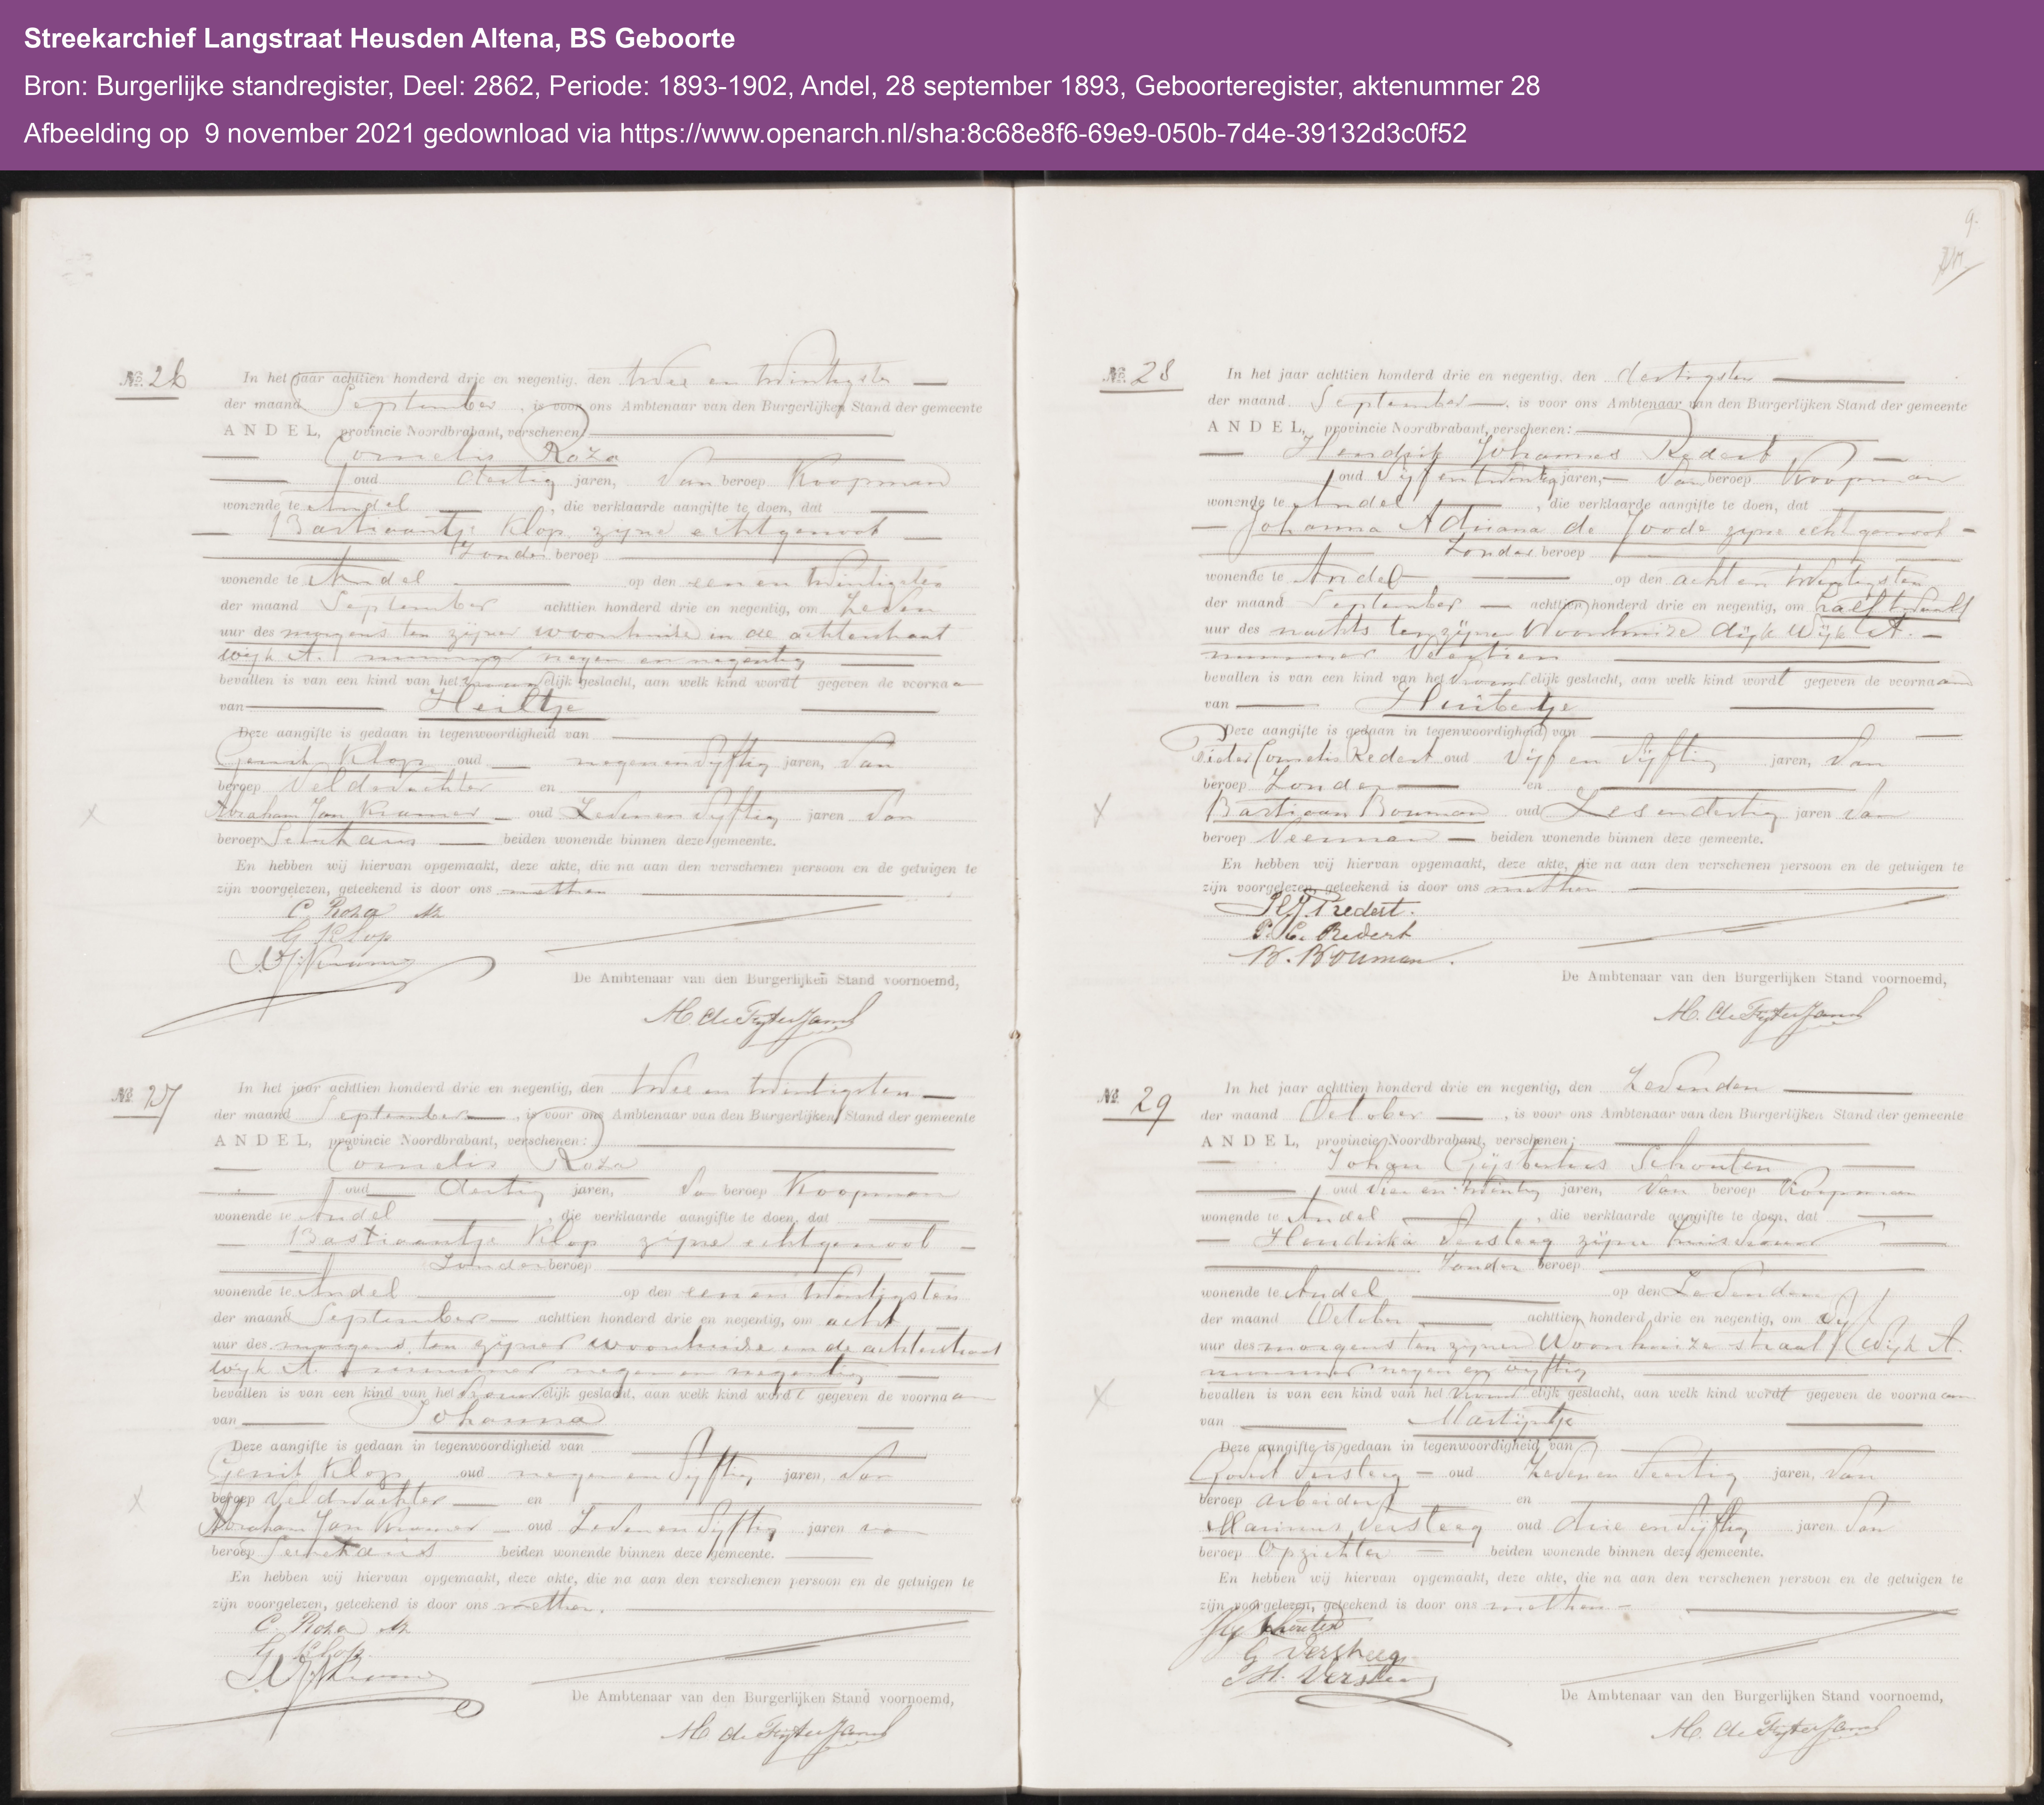 Streekarchief Langstraat Heusden Altena, BS Geboorte
Bron: Burgerlijke standregister, Deel: 2862, Periode: 1893-1902, Andel, 28 september 1893, Geboorteregister, aktenummer 28
Afbeelding op 9 november 2021 gedownload via https://www.openarch.nl/sha:8c68e8f6-69e9-050b-7d4e-39132d3c0f52
No. 26 In het jaar achttien honderd drie en negentig, den twee en twintigsten
der maand September, is voor ons Ambtenaar van den Burgerlijken Stand der gemeente
ANDEL, provincie Noordbrabant, verschenen:
Cornelis Roza
oud dertig jaren, van beroep Koopman
wonende te Andel, die verklaarde aangifte te doen, dat
Bastiaantje Klop zijne echtgenoot
Zonder beroep
wonende te Andel op den een en twintigsten
der maand September achttien honderd drie en negentig, om zeven
uur des morgens ten zijner woonhuize in de achterstraat
wijk A. nummer negen en negentig
bevallen is van een kind van het vrouwelijk geslacht, aan welk kind wordt gegeven de voornaam
van Heiltje
Deze aangifte is gedaan in tegenwoordigheid van
Gerrit Klop oud negen en vijftig jaren, van
beroep Veldwachter en
Abraham Jan Kramer oud Zeven en vijftig jaren van
beroep beiden wonende binnen deze gemeente.
En hebben wij hiervan opgemaakt, deze akte, die na aan den verschenen persoon en de getuigen te
zijn voorgelezen, geteekend is door ons met hen
C. Roza
G Klop
A. J. Kramer
De Ambtenaar van den Burgerlijken Stand voornoemd,
No. 27 In het jaar achttien honderd drie en negentig, den twee en twintigsten
der maand September, is voor ons Ambtenaar van den Burgerlijken Stand der gemeente
ANDEL, provincie Noordbrabant, verschenen:
Cornelis Roza
oud dertig jaren, van beroep Koopman
wonende te Andel, die verklaarde aangifte te doen, dat
Bastiaantje Klop zijne echtgenoot
Zonder beroep
wonende te Andel op den een en twintigsten
der maand September achttien honderd drie en negentig, om acht
uur des morgens ten zijner woonhuize in de achterstraat
wijk A. nummer negen en negentig
bevallen is van een kind van het vrouwelijk geslacht, aan welk kind wordt gegeven de voornaam
van Johanna
Deze aangifte is gedaan in tegenwoordigheid van
Gerrit Klop oud negen en vijftig jaren, van
beroep Veldwachter en
Abraham Jan Kramer oud Zeven en vijftig jaren van
beroep beiden wonende binnen deze gemeente.
En hebben wij hiervan opgemaakt, deze akte, die na aan den verschenen persoon en de getuigen te
zijn voorgelezen, geteekend is door ons met hen.
C. Roza
G Klop
A. J. Kramer
De Ambtenaar van den Burgerlijken Stand voornoemd,
9.
No. 28 In het jaar achttien honderd drie en negentig, den dertigsten
der maand September, is voor ons Ambtenaar van den Burgerlijken Stand der gemeente
ANDEL, provincie Noordbrabant, verschenen:
Hendrik Johannes Redert
oud Vijf en twintig jaren, van beroep Koopman
wonende te Andel, die verklaarde aangifte te doen, dat
Johanna Adriana de Joode zijne echtgenoot
Zonder beroep
wonende te Andel op den acht en twintigsten
der maand September achttien honderd drie en negentig, om half twaalf
uur des nachts ten zijner Woonhuize dijk Wijk A.
nummer Veertien
bevallen is van een kind van het vrouwelijk geslacht, aan welk kind wordt gegeven de voornaam
van Huibertje
Deze aangifte is gedaan in tegenwoordigheid van
Pieter Cornelis Redert oud vijf en vijftig jaren, van
beroep Zonder en
Bastiaan Bouman oud Zes en dertig jaren van
beroep Veerman beiden wonende binnen deze gemeente.
En hebben wij hiervan opgemaakt, deze akte, die na aan den verschenen persoon en de getuigen te
zijn voorgelezen, geteekend is door ons met hen
H J. Redert.
P. C. Redert
B. Bouman.
De Ambtenaar van den Burgerlijken Stand voornoemd,
No. 29 In het jaar achttien honderd drie en negentig, den Zevenden
der maand October, is voor ons Ambtenaar van den Burgerlijken Stand der gemeente
ANDEL, provincie Noordbrabant, verschenen:
Johan Gijsbertus Schouten
oud vier en twintig jaren, van beroep Koopman
wonende te Andel, die verklaarde aangifte te doen, dat
Hendrika Versteeg zijne huisvrouw
Zonder beroep
wonende te Andel op den Zevenden
der maand October achttien honderd drie en negentig, om
uur des morgens ten zijner Woonhuize straat Wijk A.
nummer negen en vijftig
bevallen is van een kind van het vrouwelijk geslacht, aan welk kind wordt gegeven de voornaam
van Martijntje
Deze aangifte is gedaan in tegenwoordigheid van
Versteeg oud Zeven en Veertig jaren, van
beroep arbeider en
Marinus Versteeg oud drie en vijftig jaren van
beroep Opzichter beiden wonende binnen deze gemeente.
En hebben wij hiervan opgemaakt, deze akte, die na aan den verschenen persoon en de getuigen te
zijn voorgelezen, geteekend is door ons met hen
Schouten
G Versteeg
M. Versteeg
De Ambtenaar van den Burgerlijken Stand voornoemd,